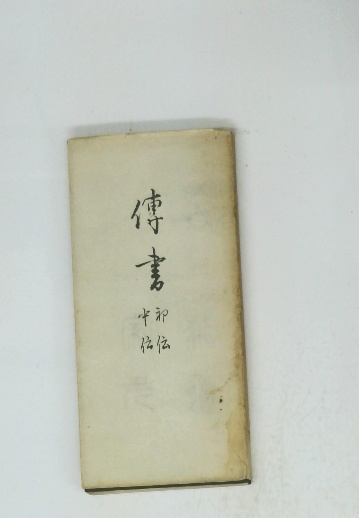 傳書
初伝
中伝